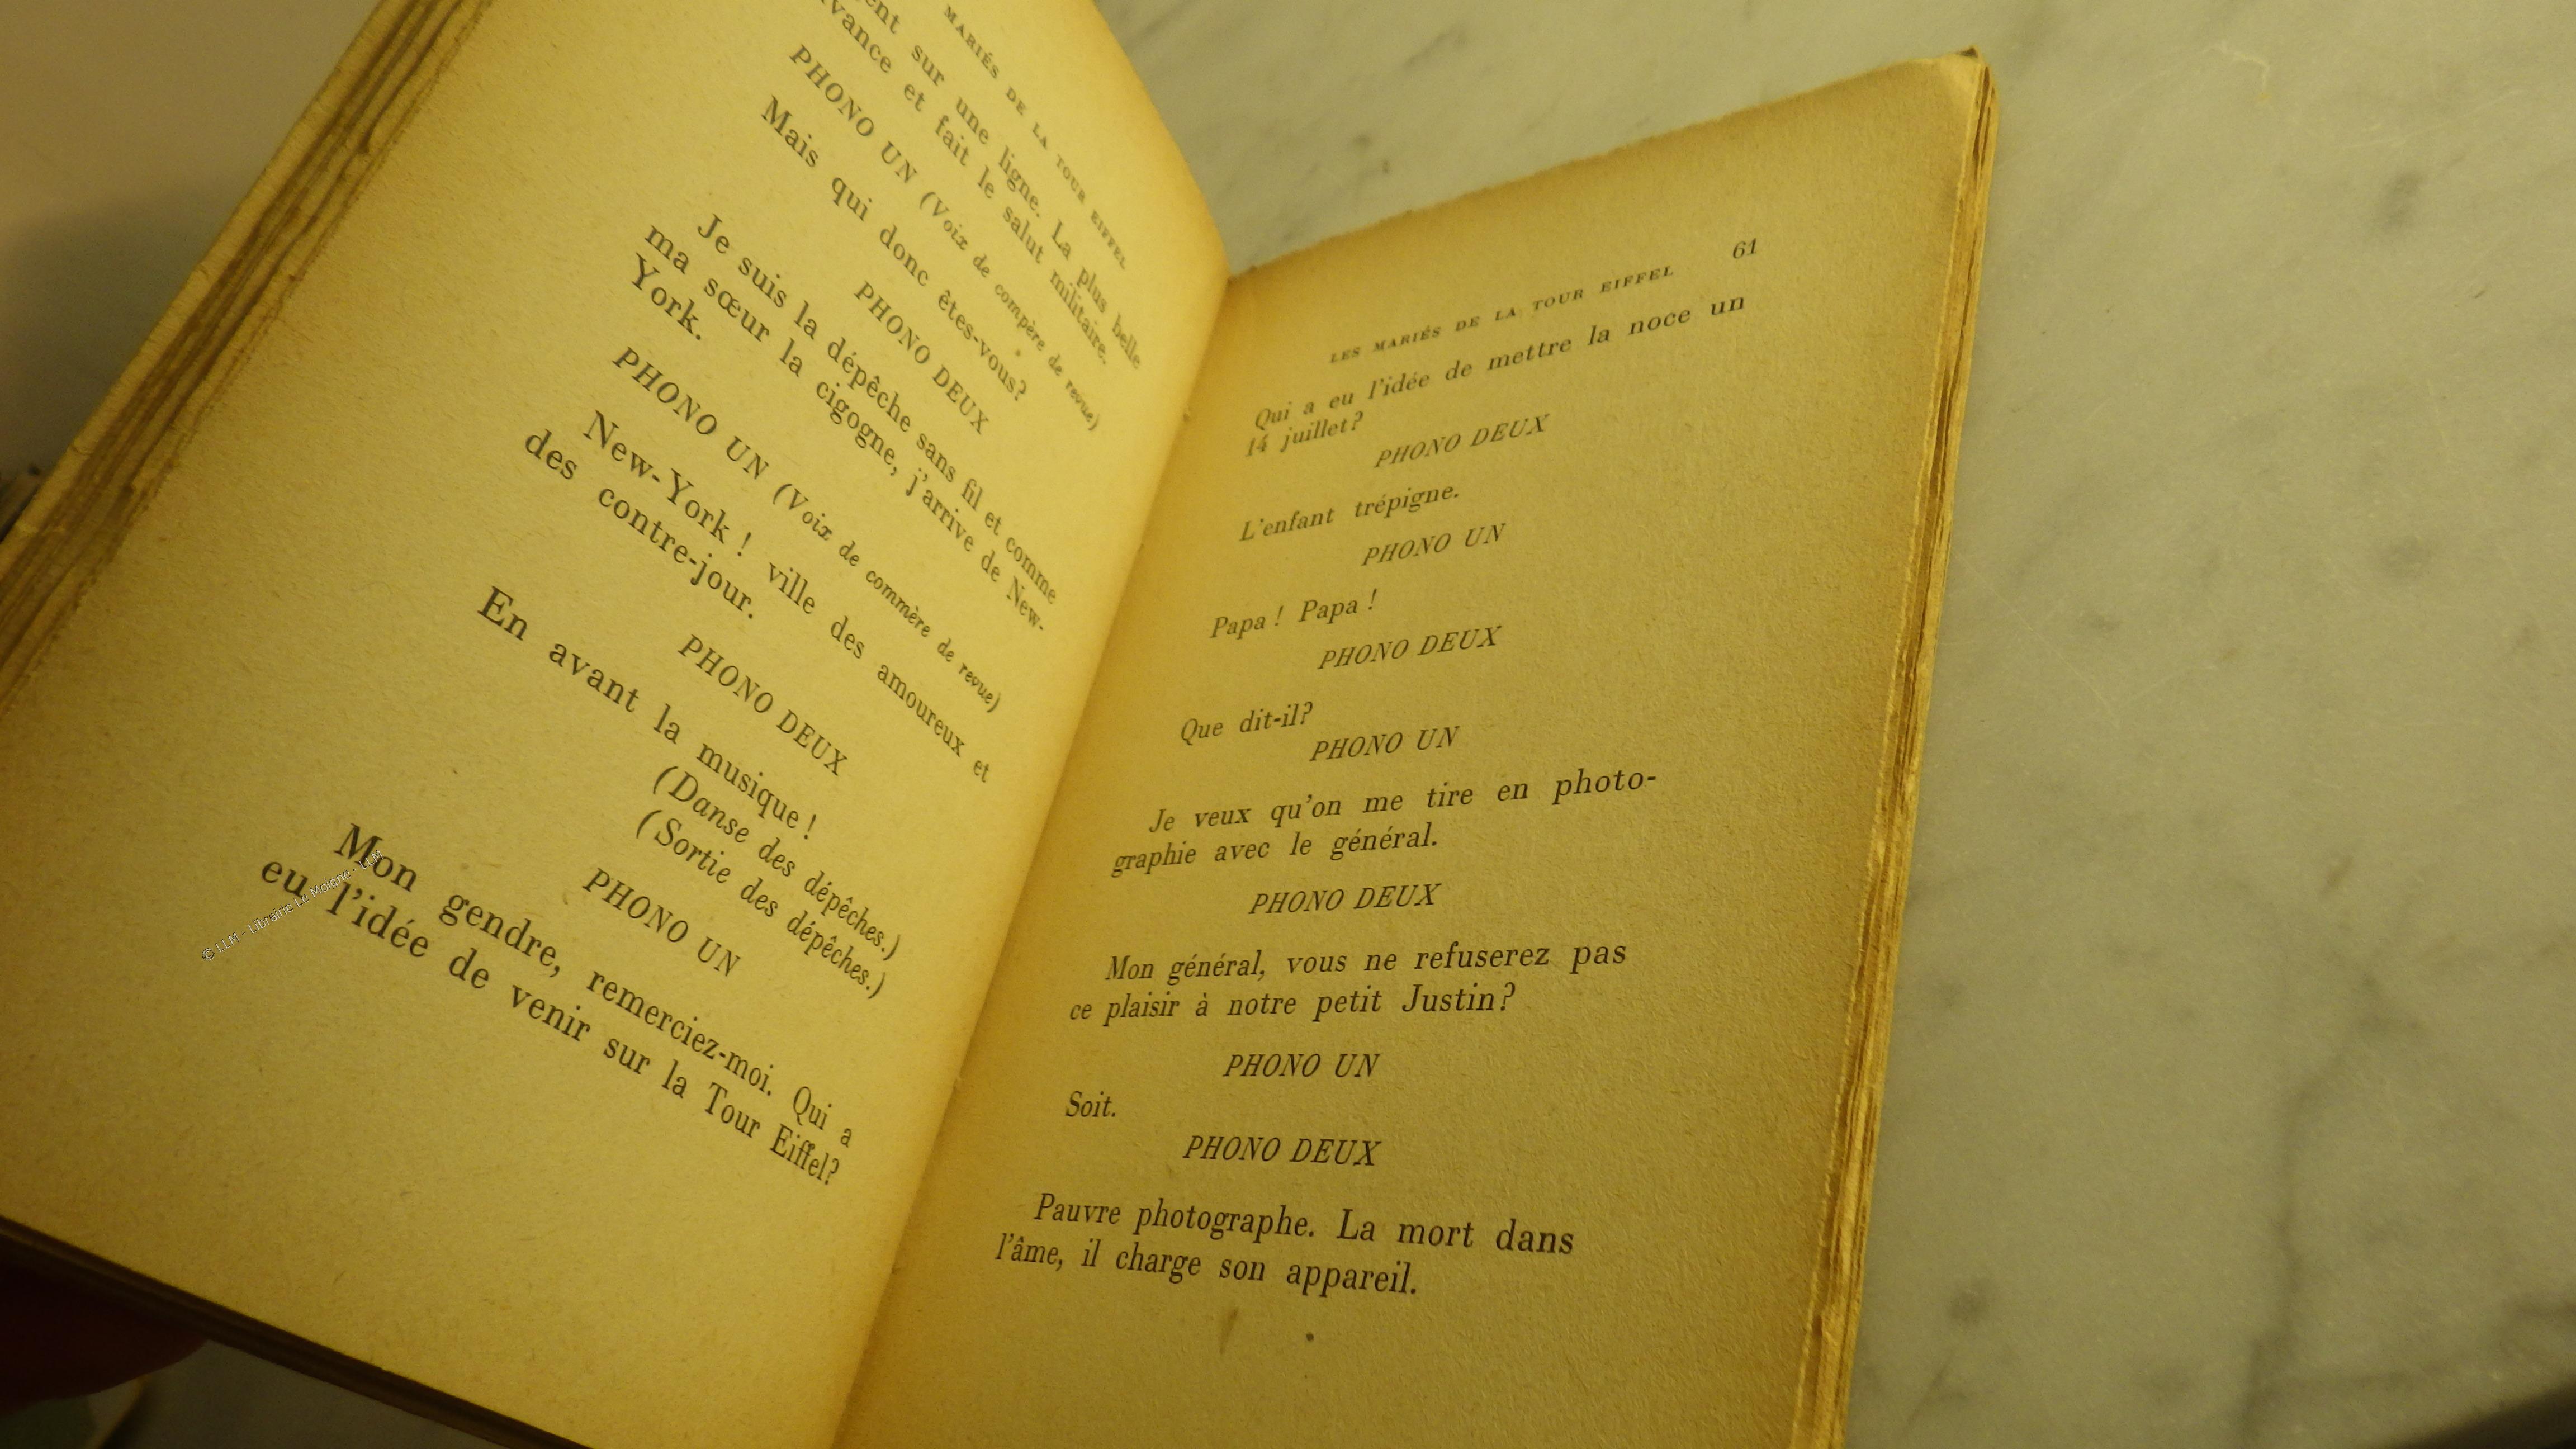 MARIÉS DE LA TOUR EIFFEL
sur une ligne. La plus belle
et fait le salut militaire.
PHONO UN (Voix de compère de revue)
Mais qui donc êtes-vous?
PHONO DEUX
Je suis la dépêche sans fil et comme
ma sœur la cigogne, j'arrive de New-
York.
PHONO UN (Voix de commère de revue)
New-York ! ville des amoureux et
des contre-jour.
PHONO DEUX
En avant la musique !
(Danse des dépêches.)
(Sortie des dépêches.)
PHONO UN
Mon gendre, remerciez-moi. Qui a
eu l'idée de venir sur la Tour Eiffel?
© LLM - Librairie Le Moigne - LLM
LES MARIÉS DE LA TOUR EIFFEL 61
Qui a eu l'idée de mettre la noce un
14 juillet?
PHONO DEUX
L'enfant trépigne.
PHONO UN
Papa ! Papa !
PHONO DEUX
Que dit-il?
PHONO UN
Je veux qu'on me tire en photo-
graphie avec le général.
PHONO DEUX
Mon général, vous ne refuserez pas
ce plaisir à notre petit Justin?
PHONO UN
Soit.
PHONO DEUX
Pauvre photographe. La mort dans
l'âme, il charge son appareil.